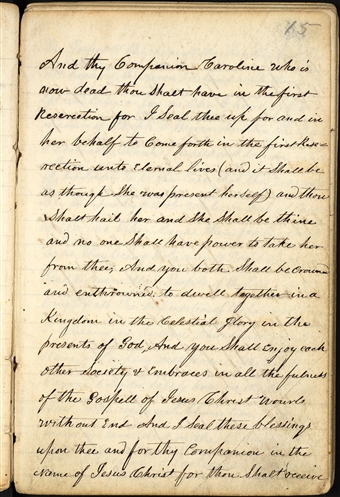 15
And thy Companion Caroline who is
now dead thou shalt have in the first
Reserection for I Seal thee up for and in
her behalf to Come forth in the first Rese-
rection unto Eternal lives (and it Shall be
as though She was present herself) and thou
Shalt hail her and She Shall be thine
and no one Shall have power to take her
from thee, And you both Shall be Crown
and enthrowned, to dwell together in a
Kingdom in the Celestial Glory in the
presents of God And you Shall Enjoy each
other Society & Embraces in all the fulness
of the Gospell of Jesus Christ wourls
without End And I Seal these blessings
upon thee and for thy Companion in the
Name of Jesus Christ for thou Shalt receive